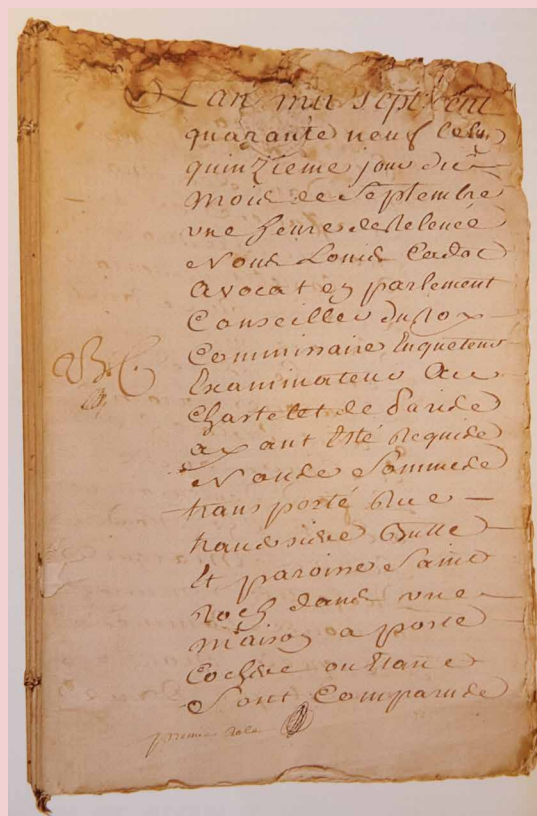 L'an mil sept cent
quarante neuf le
quinzieme jour du
mois de Septembre
une heure de Relevée
Nous Louis Cadot
avocat en parlement
Conseiller du Roy
Commissaire Enqueteur
Examinateur au
Chastelet de Paris
ayant esté Requis
Nous Sommes
transporté Rue
traversiere Butte
et paroisse Saint
Roch dans une
maison a porte
Cochere ou etant
Sont Comparus
premier Role